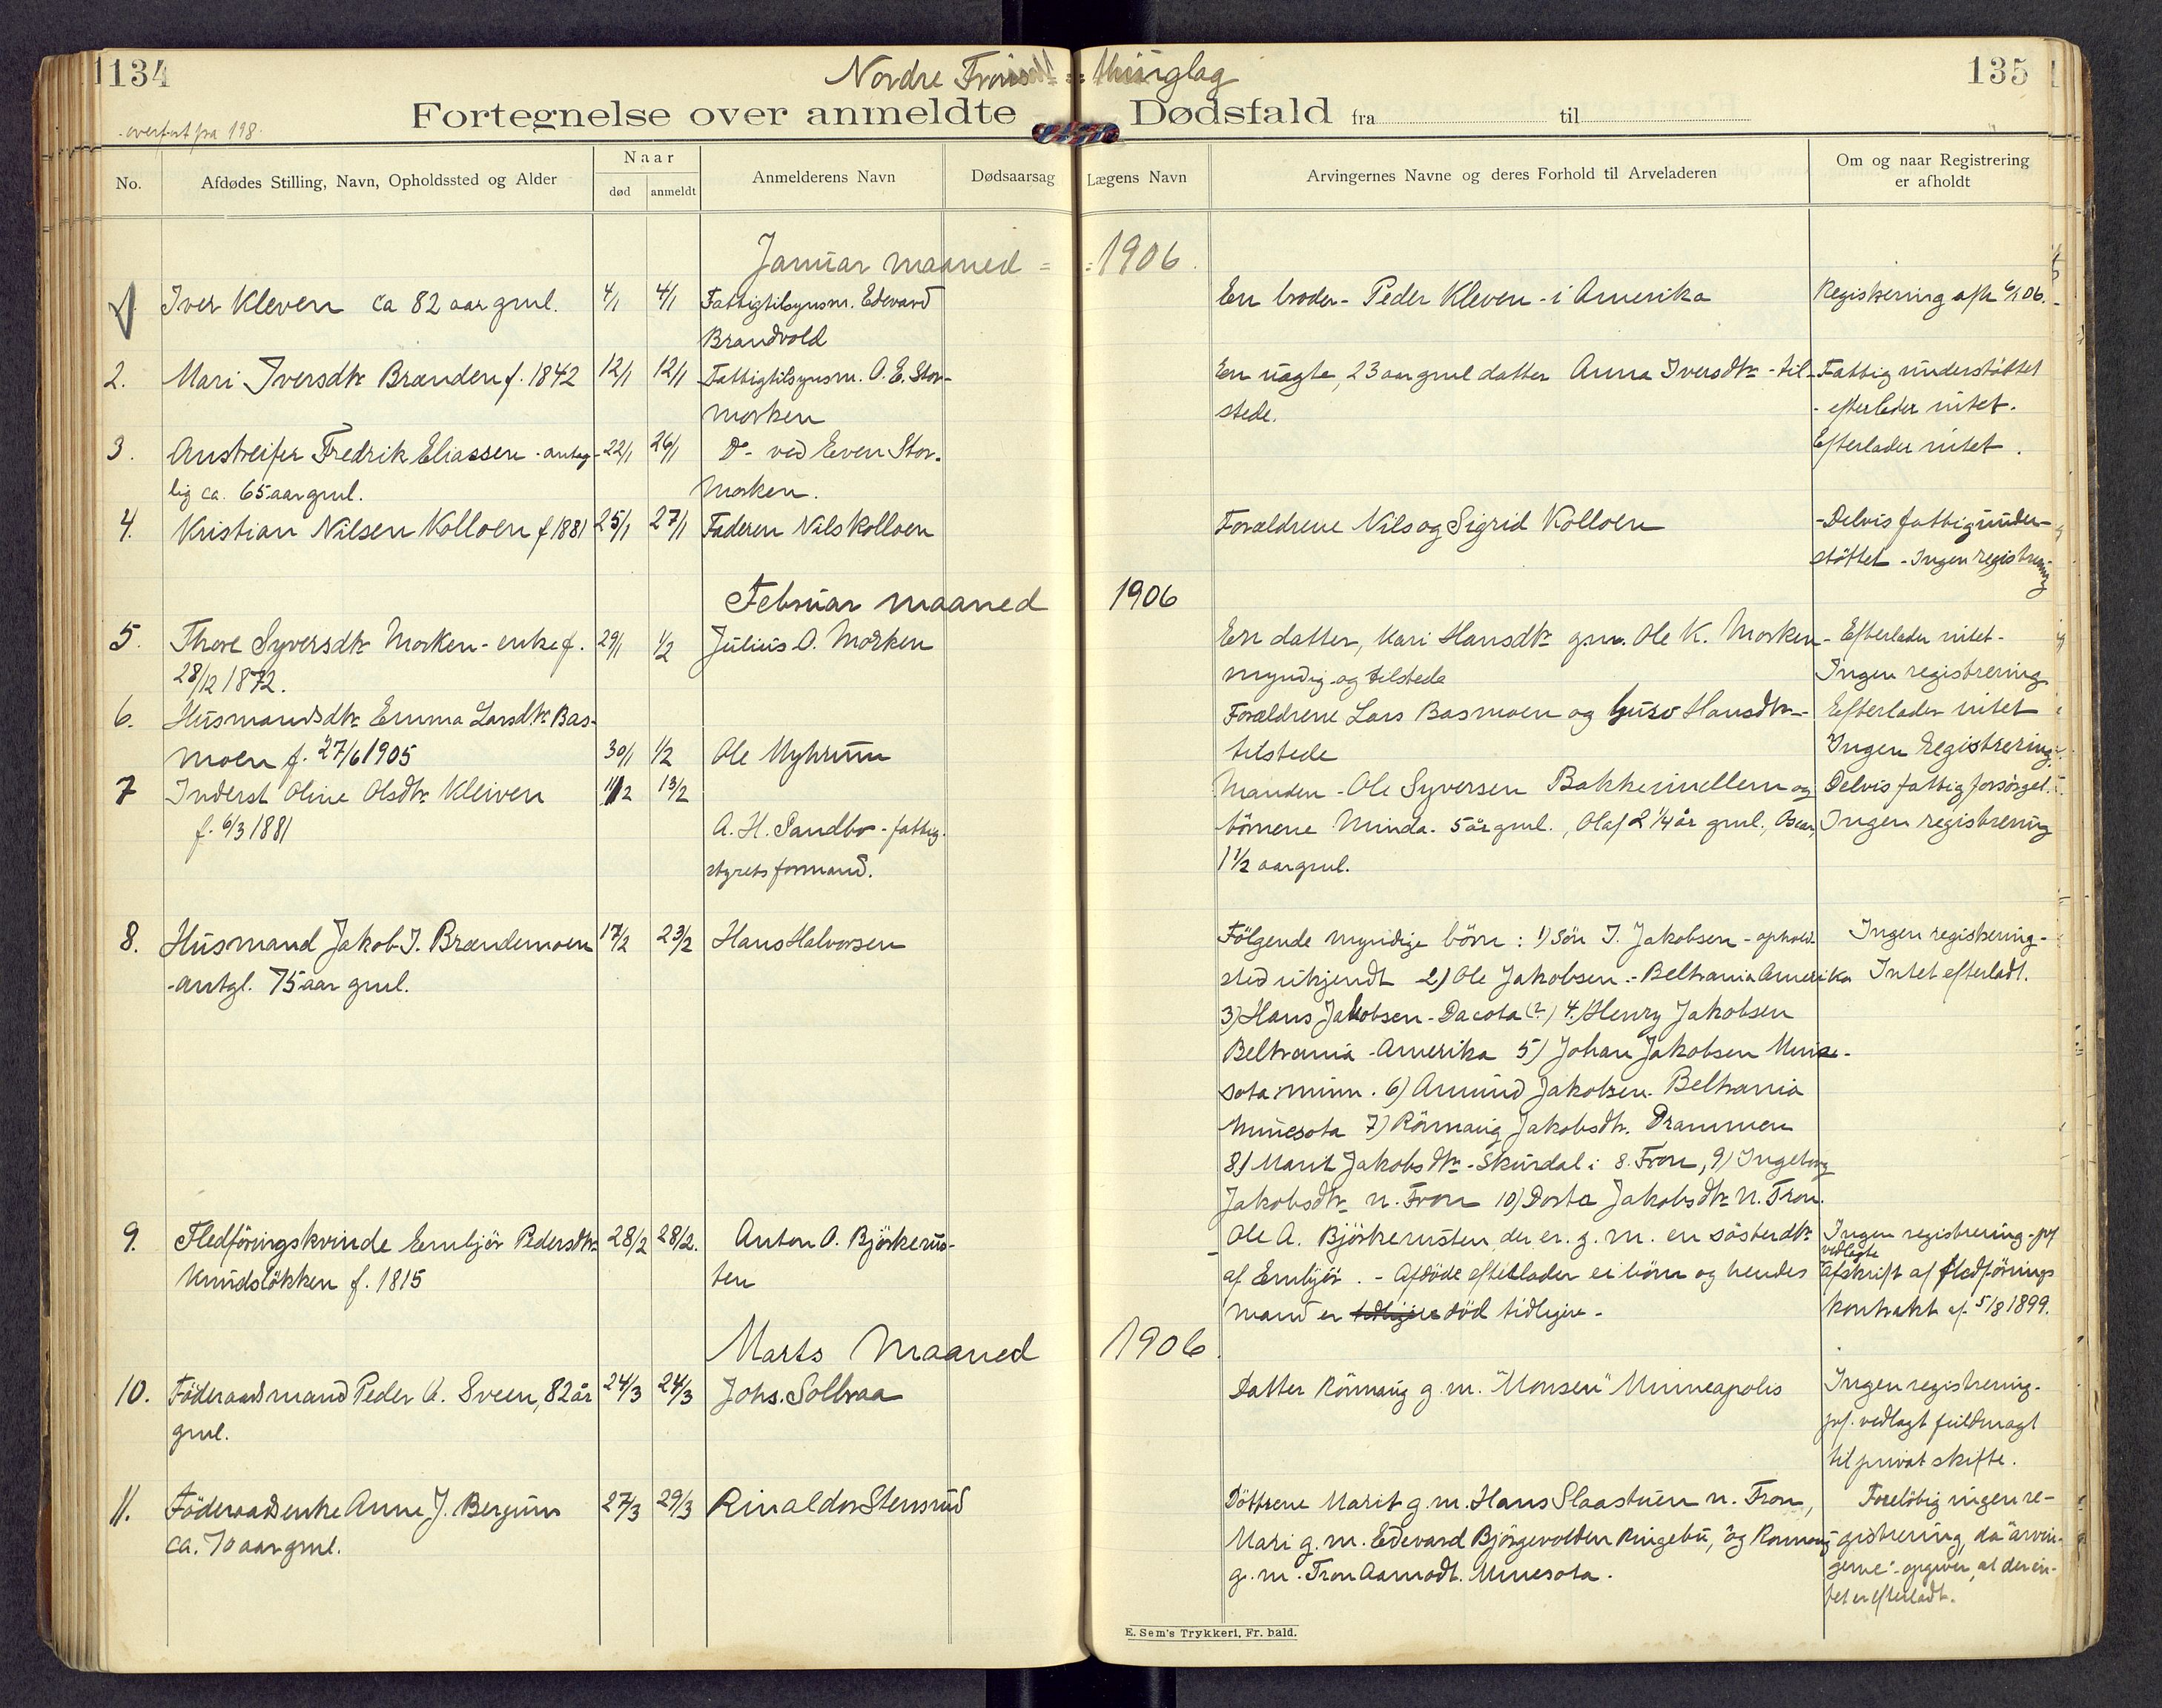 134
Nordre Frons = Thinglag
135
Fortegnelse over anmeldte Dødsfald fra til
overført fra 198.
No.
Afdødes Stilling, Navn, Opholdssted og Alder
Naar
død
anmeldt
Anmelderens Navn
Dødsaarsag
Lægens Navn
Arvingernes Navne og deres Forhold til Arveladeren
Om og naar Registrering
er afholdt
Januar maaned = = 1906.
Iver Kleven ca 82 aar gml. 4/1 4/1 Fattigtilsynsm. Edevard
Brandvold
En broder - Peder Kleven - i Amerika
Registrering afh 6/1 06.
2. Mari Iversdtr Brænden f. 1842 12/1 12/1 Fattigtilsynsm. O. E. Stor-
morken
En uægte, 23 aar gml datter Anna Iversdtr - til-
stede.
Fattig understøttet
- efterlader intet.
3. Anstreifer Fredrik Eliassen - antag- 22/1 26/1 Do - ved Even Stor-
lig ca. 65 aar gml.
morken.
Efterlader intet.
4. Kristian Nilsen Kolloen f 1881 25/1 27/1 Faderen Nils Kolloen
Forældrene Nils og Sigrid Kolloen
- Delvis fattigunder-
støttet - Ingen registrering
Februar maaned 1906
5. Thore Syversdtr Morken - enke f. 29/1 1/2 Julius O. Morken
28/12 1872.
En datter, Kari Hansdtr gm. Ole K. Morken
myndig og tilstede
- Efterlader intet -
Ingen registrering
6. Husmandsdtr Emma Larsdtr Bas-
moen f. 27/6 1905 30/1 1/2 Ole Myhrum
Forældrene Lars Basmoen og Guro Hansdtr -
tilstede
Efterlader intet
Ingen Registrering.
7 Inderst Oline Olsdtr Kleiven 11/2 13/2
f. 6/3 1881
A. H. Sandbo - fattig-
styrets formand.
Manden - Ole Syversen Bakkemellem og
børnene Minda - 5 år gml., Olaf 2 1/4 år gml., Oscar,
1 1/2 aar gml.
Delvis fattig forsørget.
Ingen registrering
8. Husmand Jakob J. Brændemoen 17/2 23/2 Hans Halvorsen
- antgl. 75 aar gml.
Følgende myndige børn: 1) Søn J. Jakobsen - ophold-
sted ukjendt 2) Ole Jakobsen - Beltrania Amerika
3) Hans Jakobsen - Dacota (?) 4.) Henry Jakobsen
Beltrania - Amerika 5) Johan Jakobsen Mine-
sota minn. 6) Amund Jakobsen. Beltrania
Minesota 7) Rønnaug Jakobsdtr. Drammen
8) Marit Jakobsdtr - Skurdal i S. Fron, 9) Ingeborg
Jakobsdtr n. Fron 10) Dorte Jakobsdtr N. Fron.
Ingen registrering -
Intet efterladt.
9. Fledføringskvinde Embjør Pedersdtr 28/2 28/2. Anton O. Bjørkerus-
Knudsløkken f. 1815
ten
Ole A. Bjørkerusten, der er g. m. en søsterdtr
af Embjør. - Afdøde efterlader ei børn og hendes
mand er tidligere død tidligere -
Ingen registrering - jvf
vedlagte
afskrift af fledførings
kontrakt af 5/8 1899.
Marts Maaned 1906.
10. Føderaadsmand Peder A. Sveen, 82 år 24/3 24/3 Johs. Solbraa
gml.
Datter Rønnaug g. m. "Monsen" Minneapolis
Ingen registrering -
jvf. vedlagt fuldmagt
til privat skifte.
11. Føderaadsenke Anne J. Bergum 27/3 29/3 Rinaldo Stensrud
ca. 70 aar gml.
Døttrene Marit g. m. Hans Slaastuen n. Fron,
Mari g. m. Edevard Bjørgevolden Ringebu, og Rønnaug
g. m. Tron Aamodt. Minesota.
Foreløbig ingen re-
gistrering, da arvin-
gerne - opgiver, at der in-
tet er efterladt.
E. Sem's Trykkeri, Fr. hald.